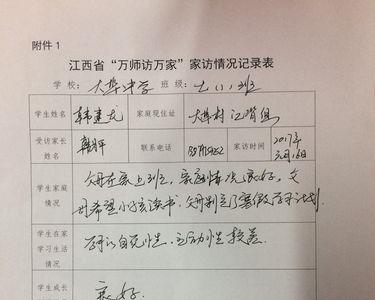 附件 1
江西省“万师访万家”家访情况记录表
学校：大埠中学 班级：七（1）班
学生姓名 韩建龙 家庭现住址 大埠村江背组
受访家长姓名 联系电话 家访时间 2017年
学生家庭情况 父母在家上班，家庭情况良好，父
母希望小孩读书，父母制定了寒假学习计划.
学生在家学习生活情况 学习自觉性、主动性较差
学生成长 良好.